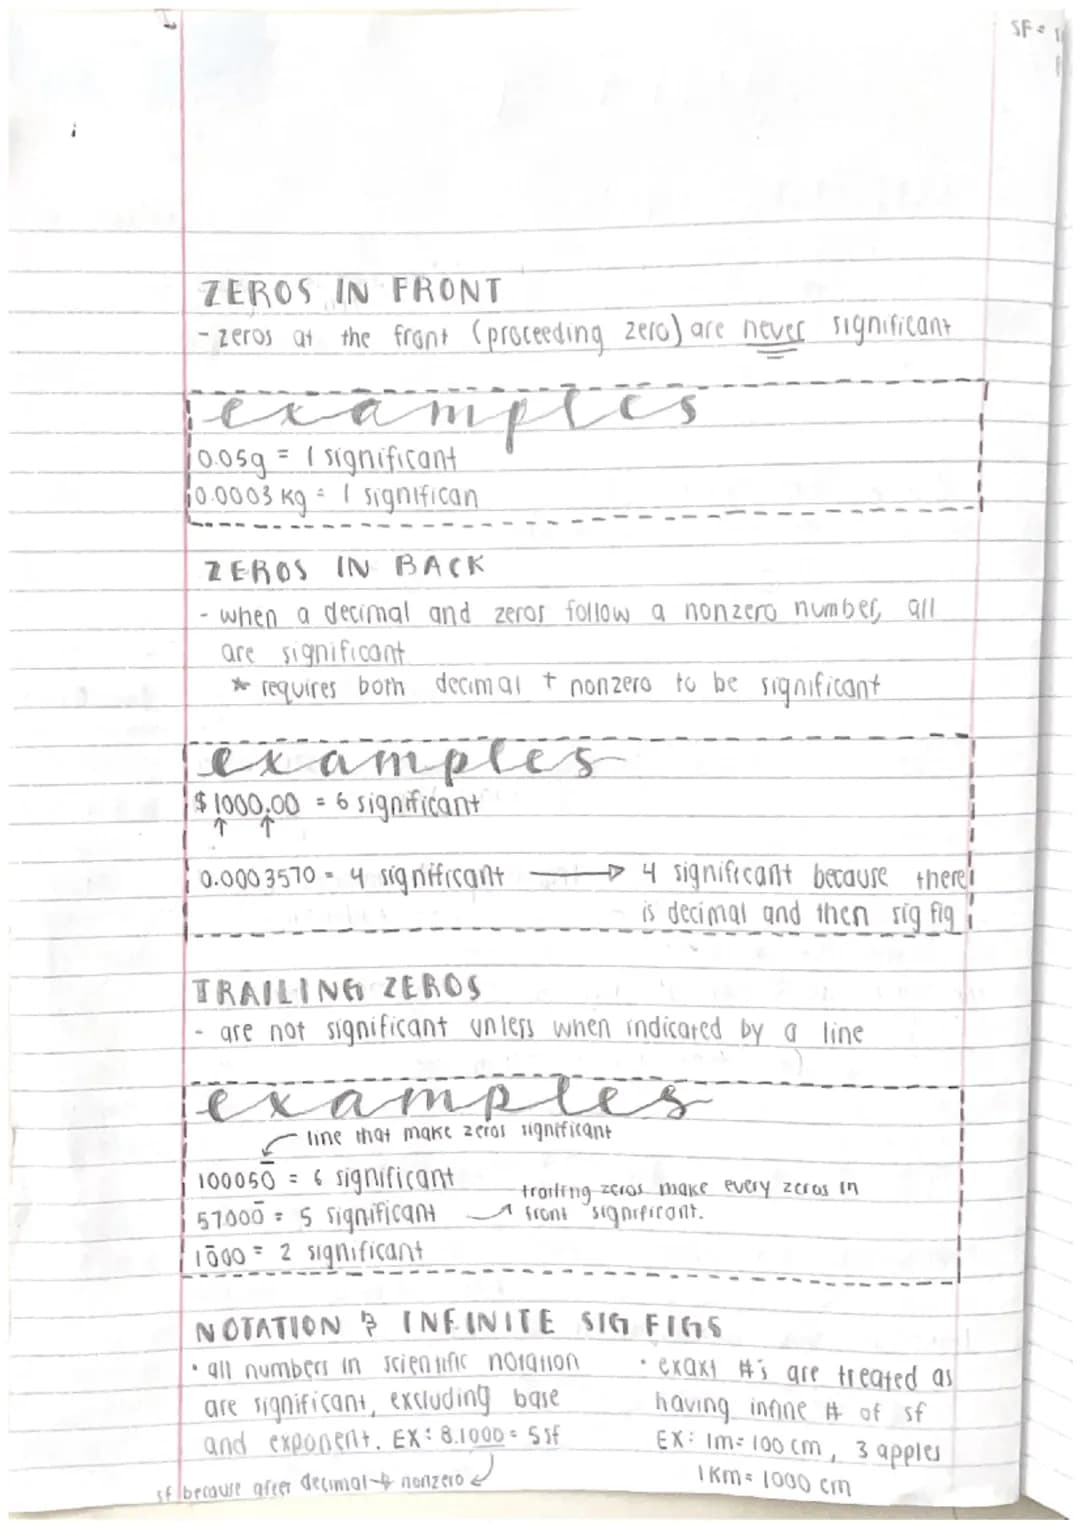 SF =
ZEROS IN FRONT
- zeros at the front (proceeding zero) are never significant
examples
0.05g = 1 significant
0.0003 kg = 1 significan
ZEROS IN BACK
- when a decimal and zeros follow a nonzero number, all
are significant
* requires both decimal + nonzero to be significant
examples
$1000.00 = 6 significant
↑ ↑
0.0003570 = 4 significant → 4 significant because there
is decimal and then sig fig
TRAILING ZEROS
- are not significant unless when indicated by a line
examples
line that make zeros significant
100050̅ = 6 significant
trailing zeros make every zeros in
57000̅ = 5 significant
front significant.
10̅00 = 2 significant
NOTATION & INFINITE SIG FIGS
• all numbers in scientific notation
are significant, excluding base
and exponent. EX: 8.1000 = 5 sf
sf because after decimal + nonzero
• exaxt #'s are treated as
having infine # of sf
EX: 1m = 100 cm, 3 apples
1 km = 1000 cm